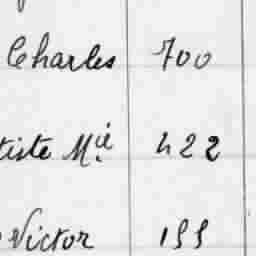 Charles 700
tiste Mie 422
Victor 155